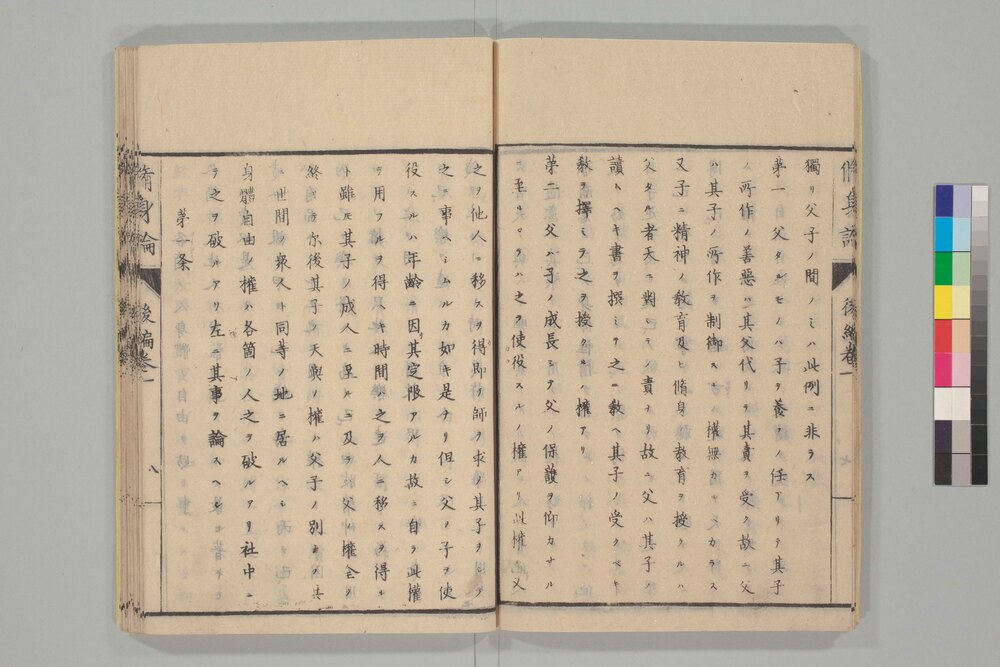 獨リ父子ノ間ノミハ此例ニ非ラス
第一父タルモノハ子ヲ養フノ任アリテ其子
ノ所作ノ善惡ハ其父代リテ其責ヲ受ク故ニ父
ハ其子ノ所作ヲ制御スルノ權無カル可カラス
又子ニ精神ノ敎育及ヒ脩身ノ敎育ヲ授クルハ
父タル者天ニ對シテノ責ナリ故ニ父ハ其子ノ
讀ムヘキ書ヲ撰ミテ之ニ敎ヘ其子ノ受クヘキ
敎ヲ擇ミテ之ヲ授クルノ權アリ
第二父ハ子ノ成長シテ父ノ保護ヲ仰カサル
ニ至ルマテハ之ヲ使役スルノ權アリ此權ハ又
之ヲ他人ニ移スヲ得即チ師ヲ求メ其子ヲシテ
之ニ事ヘシムルカ如キ是ナリ但シ父ノ子ヲ使
役スルハ年齡ニ因テ其定限アルカ故ニ自ラ此權
ヲ用フルヲ得ヘキ時間ハ之ヲ人ニ移スヲ得ル
ト雖モ其子ノ成人ニ至ルニ及テ父ノ權全ク
終ル尓後其子ノ天與ノ權ハ父子ノ別ナク其
ニ世間ノ衆人ト同等ノ地ニ居ルヘシ
身體自由ノ權ハ各箇ノ人之ヲ破ルアリ社中ニ
テ之ヲ破ルアリ左ニ其事ヲ論スヘシ
第一条
脩身論
後編卷一
八